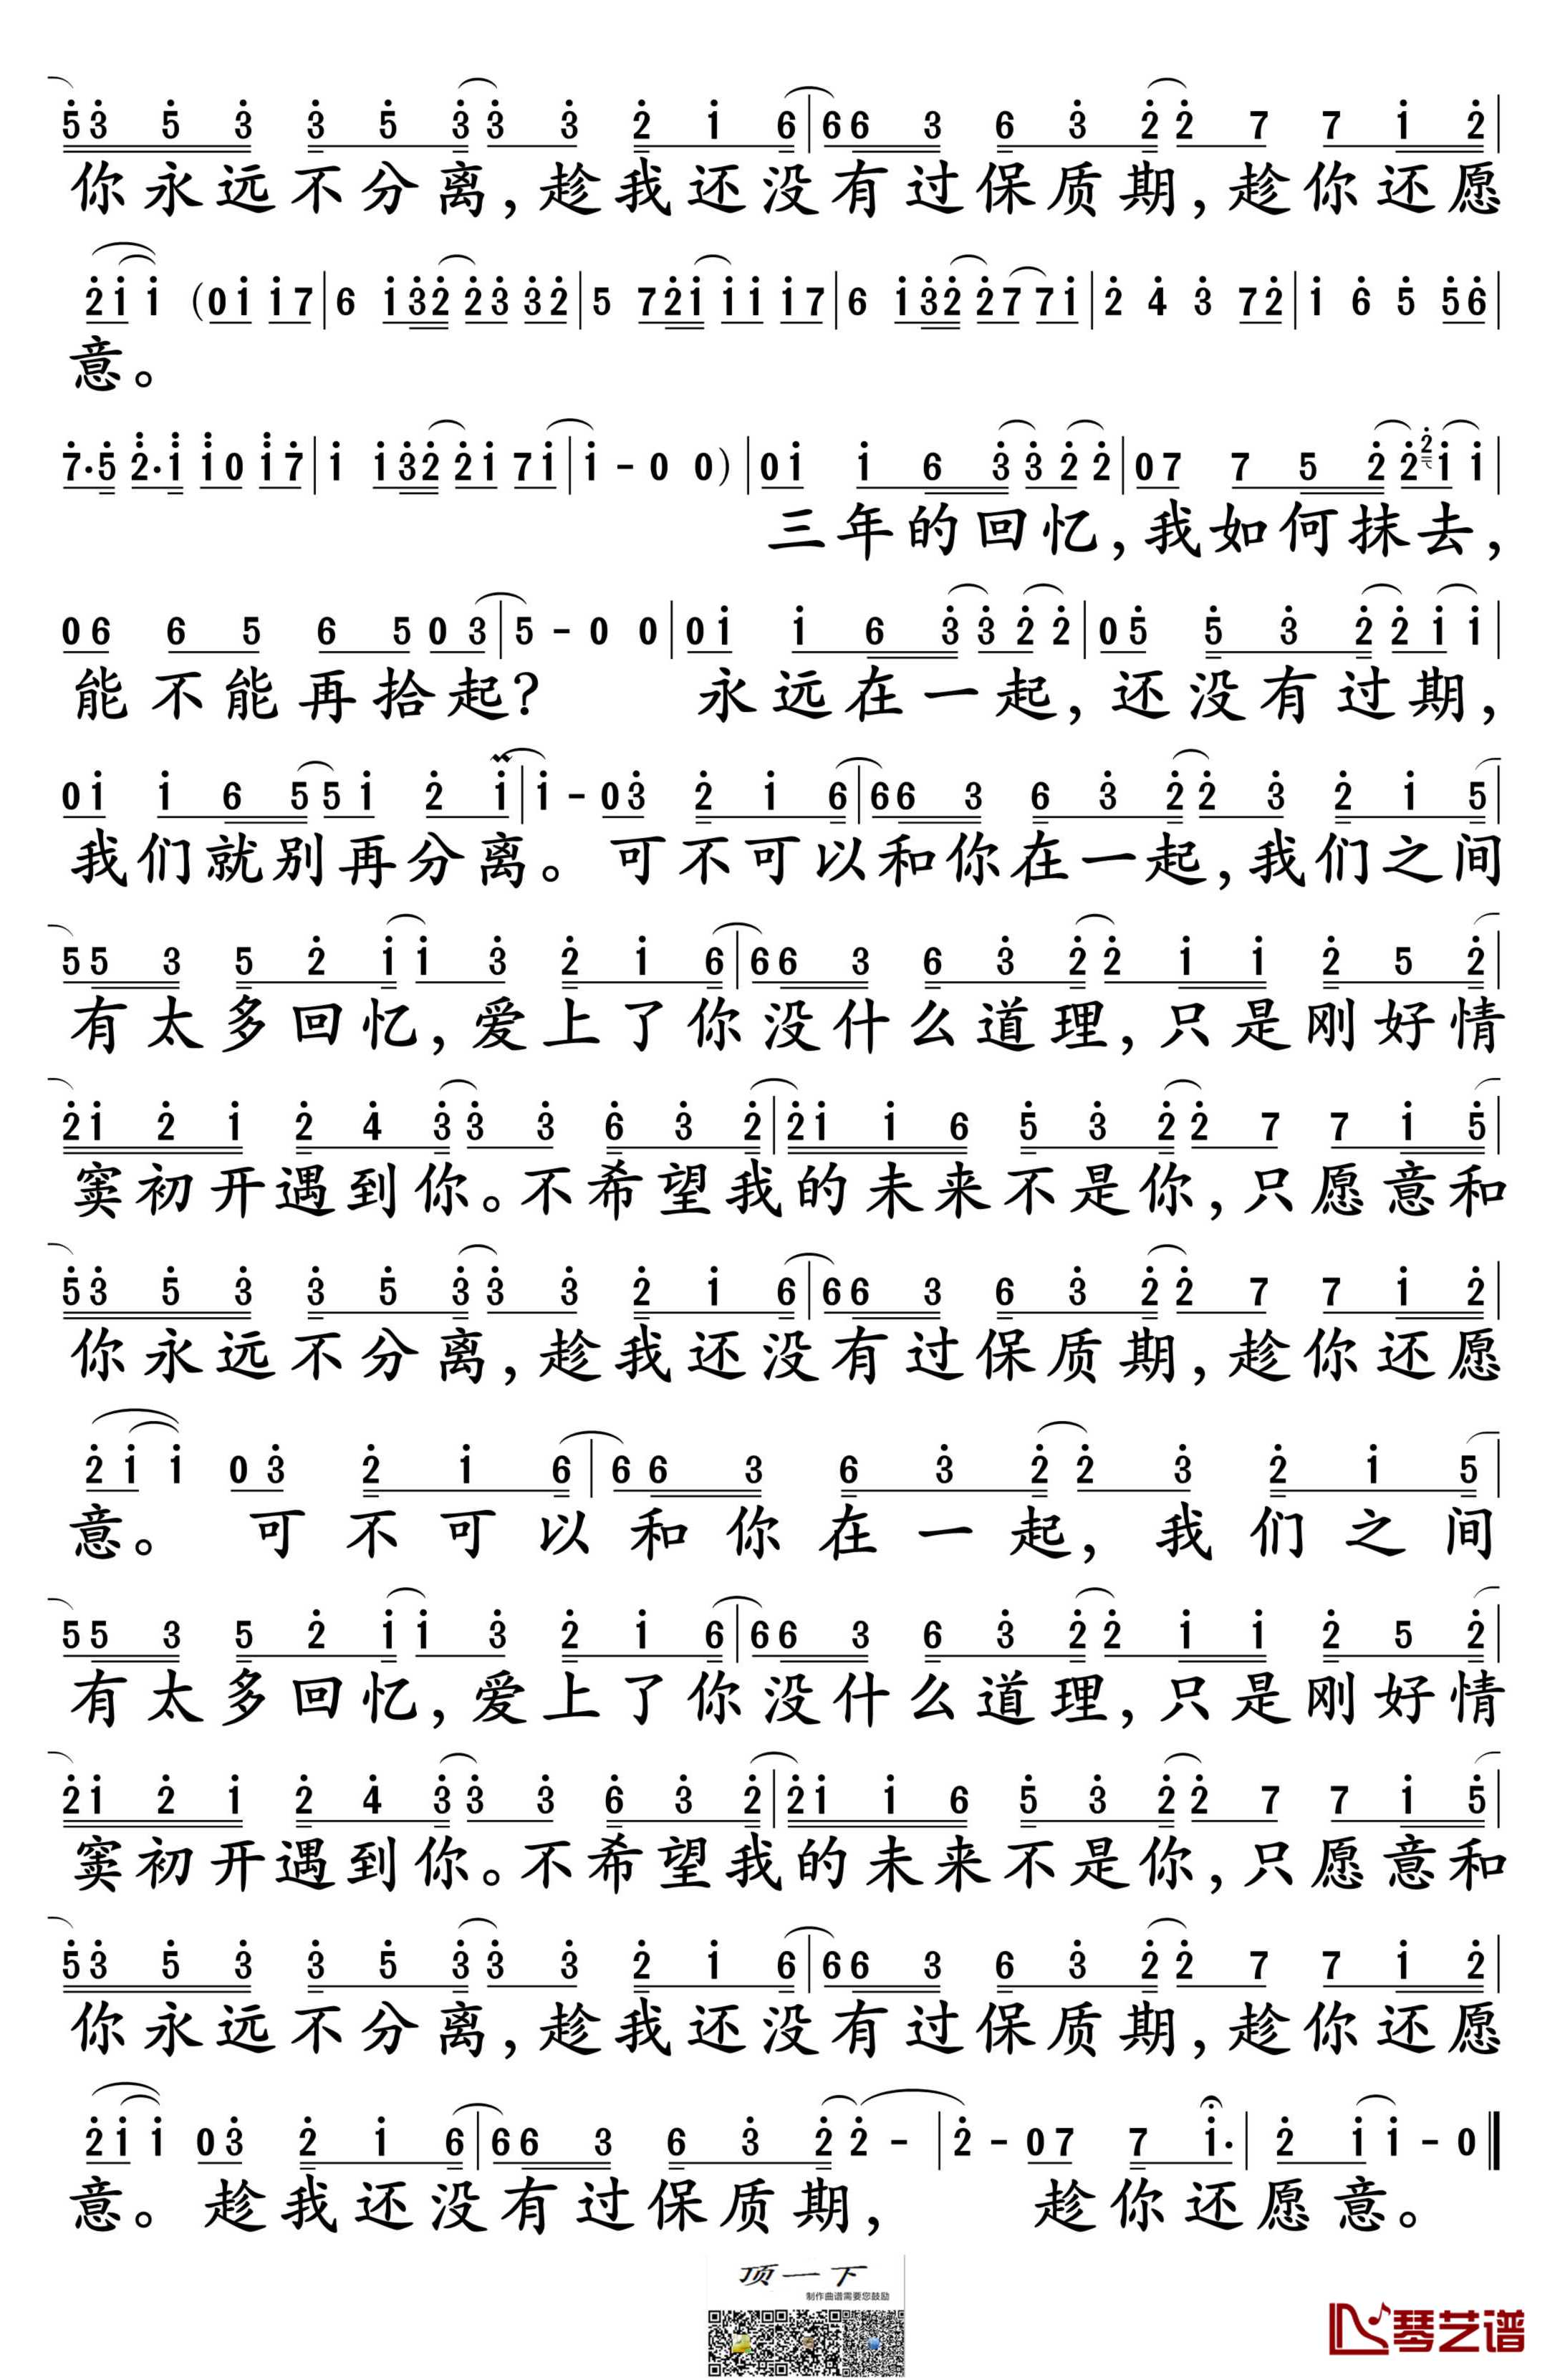 5̇3̇ 5̇ 3̇ 3̇ 5̇ 3̇3̇ 3̇ 2̇ 1̇ 6|66 3 6 3̇ 2̇2̇ 7 7 1̇ 2̇|
你永远不分离,趁我还没有过保质期,趁你还愿
2̇1̇ 1̇ (01̇ 1̇7|6 1̇3̇2̇ 2̇3̇ 3̇2̇|5 72̇1̇ 1̇1̇ 1̇7|6 1̇3̇2̇ 2̇7 71̇|2̇ 4̇ 3̇ 72̇|1̇ 6̇ 5̇ 5̇6̇|
意。
7̇·5̇ 2̈·1̈ 1̈0 1̈7̇|1̇ 1̇3̇2̇ 2̇1̇ 71̇|1̇ - 0 0)|01̇ 1̇ 6 3̇3̇ 2̇2̇|07 7 5 2̇2̇ 2̇ 1̇ 1̇|
三年的回忆,我如何抹去,
06 6 5 6 5 0 3|5 - 0 0|01̇ 1̇ 6 3̇3̇ 2̇2̇|05̇ 5̇ 3̇ 2̇2̇ 1̇1̇|
能不能再拾起? 永远在一起,还没有过期,
01̇ 1̇ 6 55 1̇ 2̇ 1̇|1̇ - 03̇ 2̇ 1̇ 6|66 3 6 3̇ 2̇2̇ 3̇ 2̇ 1̇ 5|
我们就别再分离。可不可以和你在一起,我们之间
55 3 5 2̇ 1̇1̇ 3̇ 2̇ 1̇ 6|66 3 6 3̇ 2̇2̇ 1̇ 1̇ 2̇ 5 2̇|
有太多回忆,爱上了你没什么道理,只是刚好情
2̇1̇ 2̇ 1̇ 2̇ 4̇ 3̇3̇ 3̇ 6̇ 3̇ 2̇|2̇1̇ 1̇ 6 5̇ 3̇ 2̇2̇ 7 7 1̇ 5̇|
窦初开遇到你。不希望我的未来不是你,只愿意和
5̇3̇ 5̇ 3̇ 3̇ 5̇ 3̇3̇ 3̇ 2̇ 1̇ 6|66 3 6 3̇ 2̇2̇ 7 7 1̇ 2̇|
你永远不分离,趁我还没有过保质期,趁你还愿
2̇1̇ 1̇ 03̇ 2̇ 1̇ 6|66 3 6 3̇ 2̇2̇ 3̇ 2̇ 1̇ 5|
意。 可不可以和你在一起,我们之间
55 3 5 2̇ 1̇1̇ 3̇ 2̇ 1̇ 6|66 3 6 3̇ 2̇2̇ 1̇ 1̇ 2̇ 5 2̇|
有太多回忆,爱上了你没什么道理,只是刚好情
2̇1̇ 2̇ 1̇ 2̇ 4̇ 3̇3̇ 3̇ 6̇ 3̇ 2̇|2̇1̇ 1̇ 6 5̇ 3̇ 2̇2̇ 7 7 1̇ 5̇|
窦初开遇到你。不希望我的未来不是你,只愿意和
5̇3̇ 5̇ 3̇ 3̇ 5̇ 3̇3̇ 3̇ 2̇ 1̇ 6|66 3 6 3̇ 2̇2̇ 7 7 1̇ 2̇|
你永远不分离,趁我还没有过保质期,趁你还愿
2̇1̇ 1̇ 03̇ 2̇ 1̇ 6|66 3 6 3̇ 2̇2̇ - |2̇ - 07 7 1̇·|2̇ 1̇1̇ - 0‖
意。趁我还没有过保质期, 趁你还愿意。
顶一下
制作曲谱需要您鼓励
琴艺谱